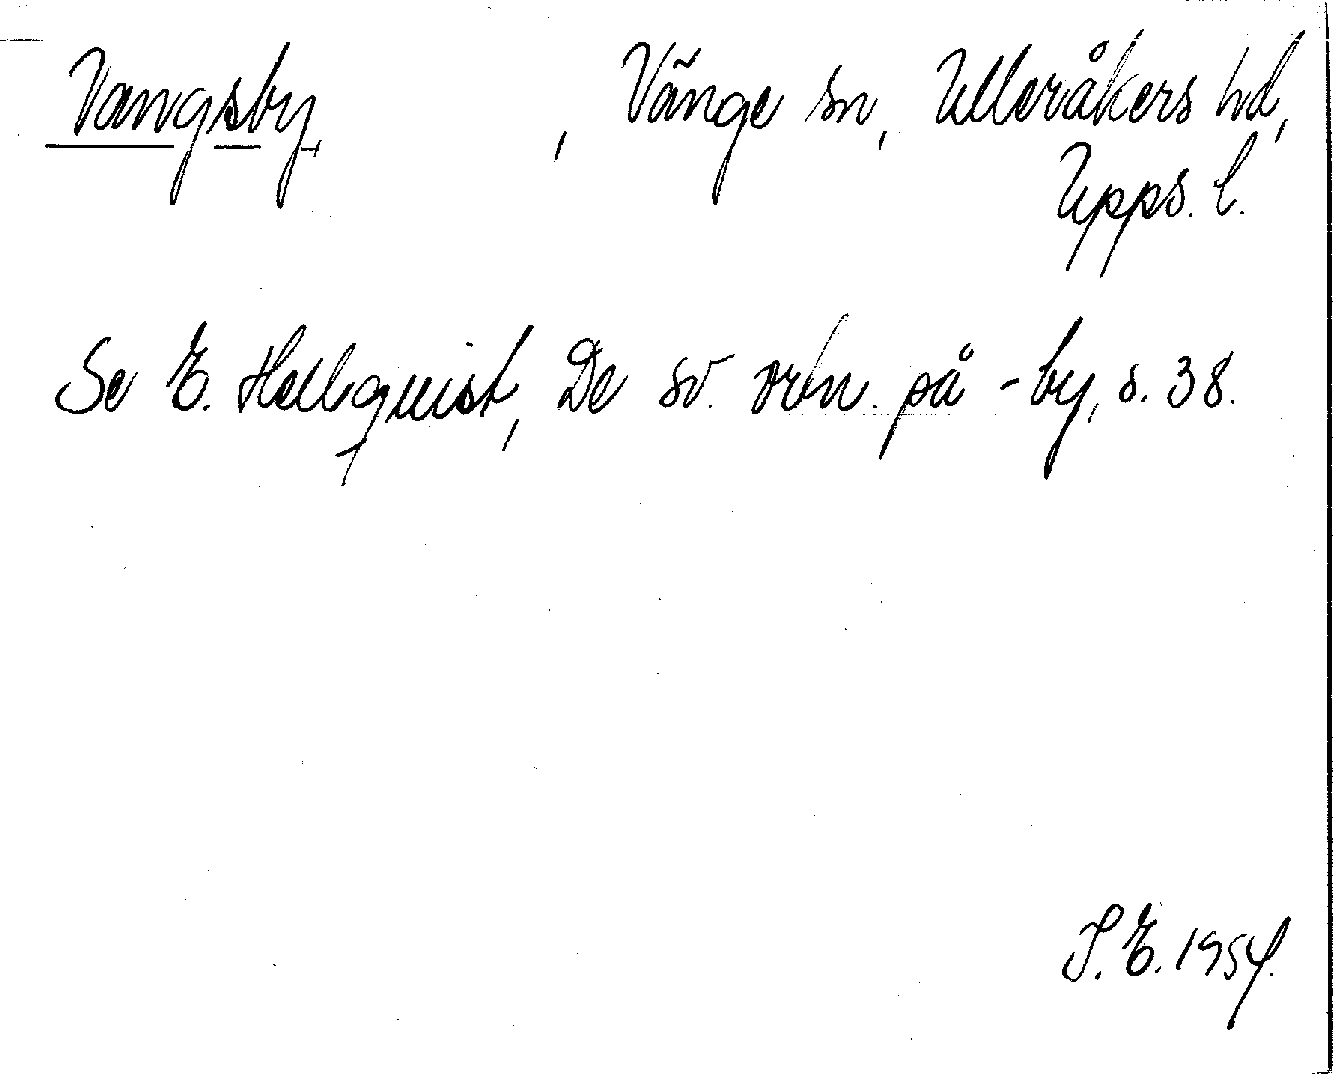 Vangsby, Vänge sn, Ulleråkers hd,
Upps. l.
Se E. Hellquist, De sv. ortn. på -by, s. 38.
S. E. 1954.